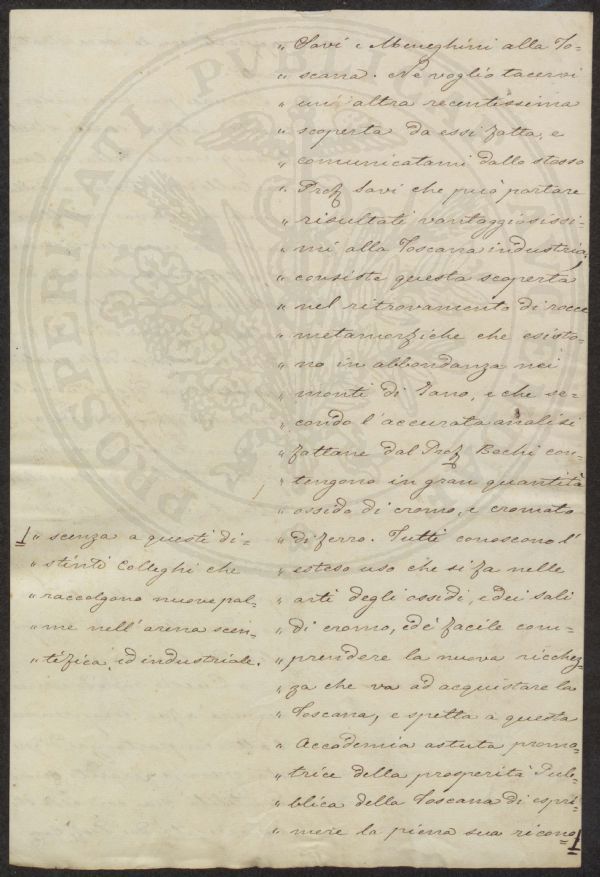 " Savi e Meneghini alla To-
" scana. Nè voglio tacervi
" un'altra recentissima
" scoperta da essi fatta, e
" comunicatami dallo stesso
" Prof. Savi che può portare
" risultati vantaggiosissi-
" mi alla Toscana industria;
" consiste questa scoperta
" nel ritrovamento di rocce
" metamorfiche che esisto-
" no in abbondanza nei
" monti di Iano, e che se-
" condo l'accurata analisi
" fattane dal Prof. Bechi con-
" tengono in gran quantità
" ossido di cromo, e cromato
" di ferro. Tutti conoscono l'
" esteso uso che si fa nelle
" arti degli ossidi, e dei sali
" di cromo, ed è facile com-
" prendere la nuova ricchez-
" za che va ad acquistare la
" Toscana, e spetta a questa
" Accademia astuta promo-
" trice della prosperità Pub-
" blica della Toscana di espri-
" mere la piena sua ricono= 1
1 " scenza a questi di-
" stinti Colleghi che
" raccolgono nuove pal-
" me nell'arena scien-
" tifica, ed industriale.
PROSPERITATI PUBLICAE